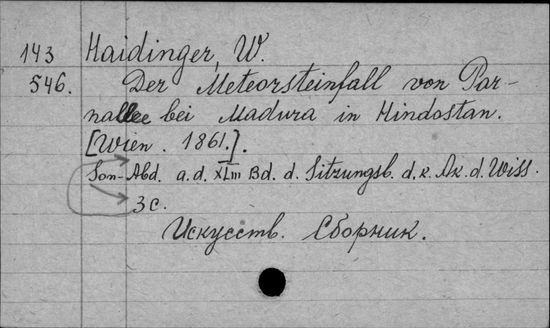 143 Haidinger, W.
546. Der Meteorsteinfall von Par-
nallee bei Madura in Hindostan.
[Wien. 1861.].
Son-Abd. a.d. XLIII Bd. d. Sitzungsb. d. k. Ak. d. Wiss.
3 c.
Искусств. Сборник.